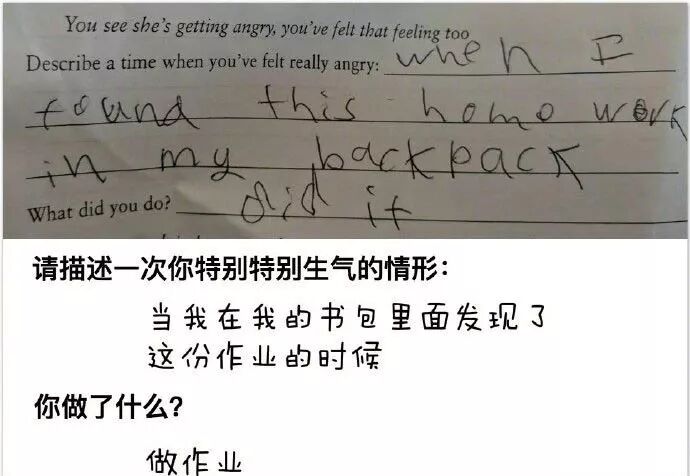 You see she's getting angry, you've felt that feeling too
Describe a time when you've felt really angry: when I
found this homo work
in my backpack
What did you do? did it
请描述一次你特别特别生气的情形：
当我在我的书包里面发现了
这份作业的时候
你做了什么？
做作业